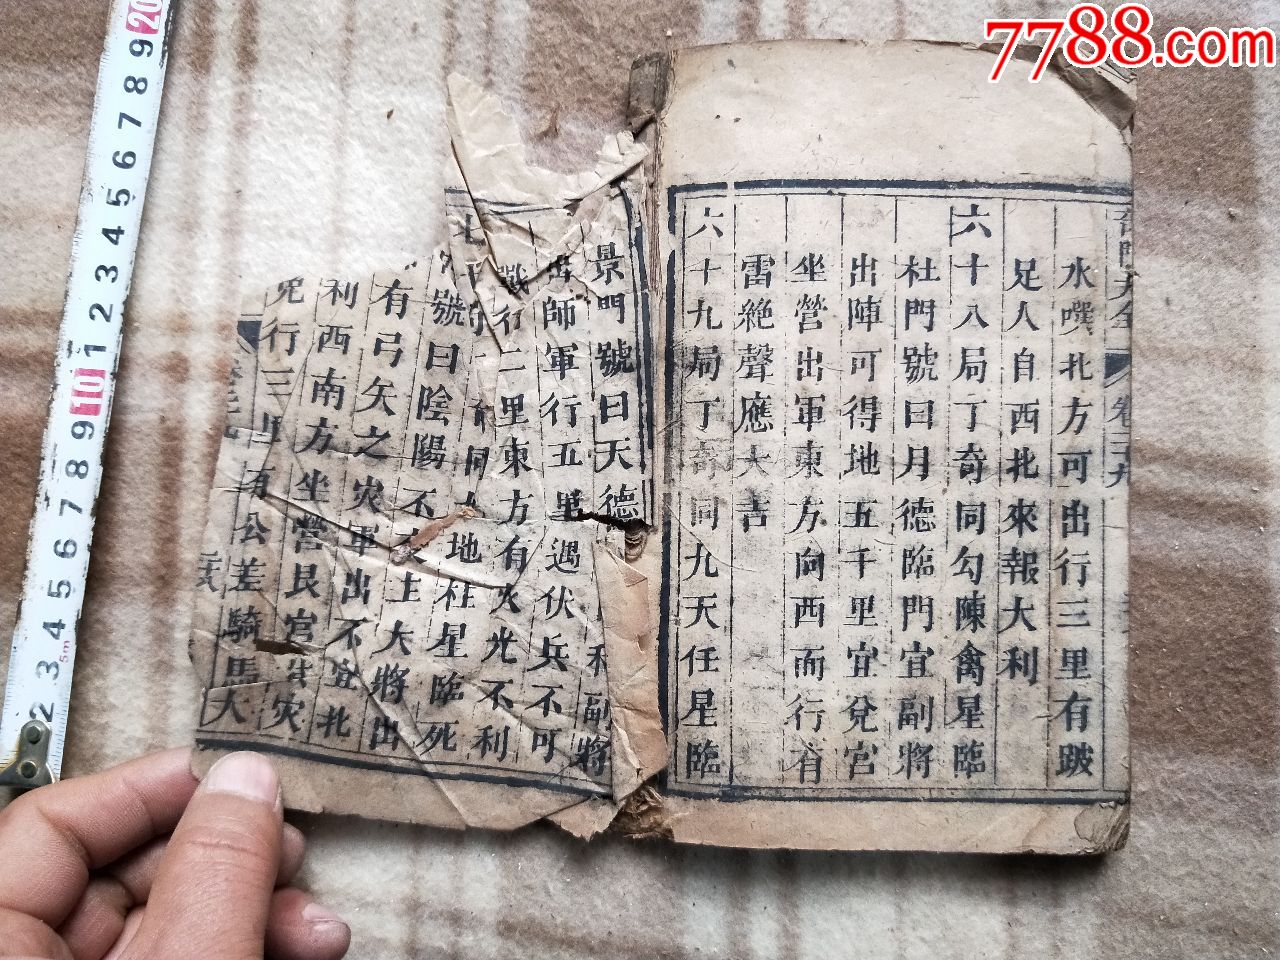 7788.com
奇門大全 卷二十九
水噀北方可出行三里有跛
足人自西北來報大利
六十八局丁奇同勾陳禽星臨
杜門號曰月德臨門宜副將
出陣可得地五千里宜兌宮
坐營出軍東方向西而行有
雷絶聲應大吉
六十九局丁奇同九天任星臨
景門號曰天德
利副將
出師軍行五里遇伏兵不可
戰行二里東方有火光不利
七十
奇同九地柱星臨死
號曰陰陽不
上大將出
有弓矢之灾軍出不宜北
利西南方坐營艮宮皆灾
行三里有公差騎馬大
20 9 8 7 6 5 4 3 2 1 10 9 8 7 6 5 4 3 2
5m